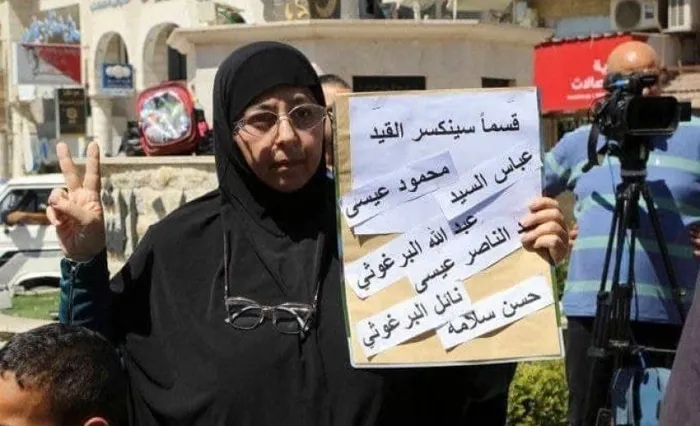 قسماً سينكسر القيد
عباس السيد
محمود عيسى
عبد الله البرغوثي
د الناصر عيسى
نائل البرغوثي
حسن سلامه